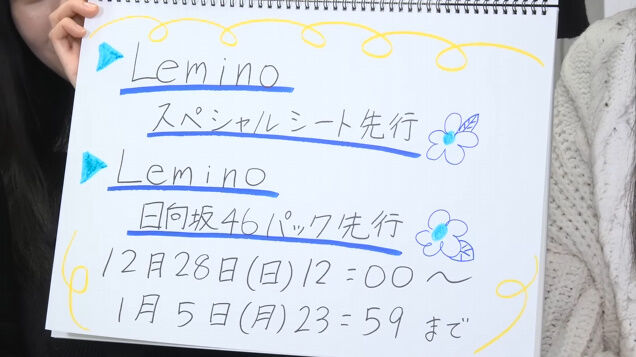 Lemino
スペシャルシート先行
Lemino
日向坂46パック先行
12月28日(日)12:00~
1月5日(月)23:59まで